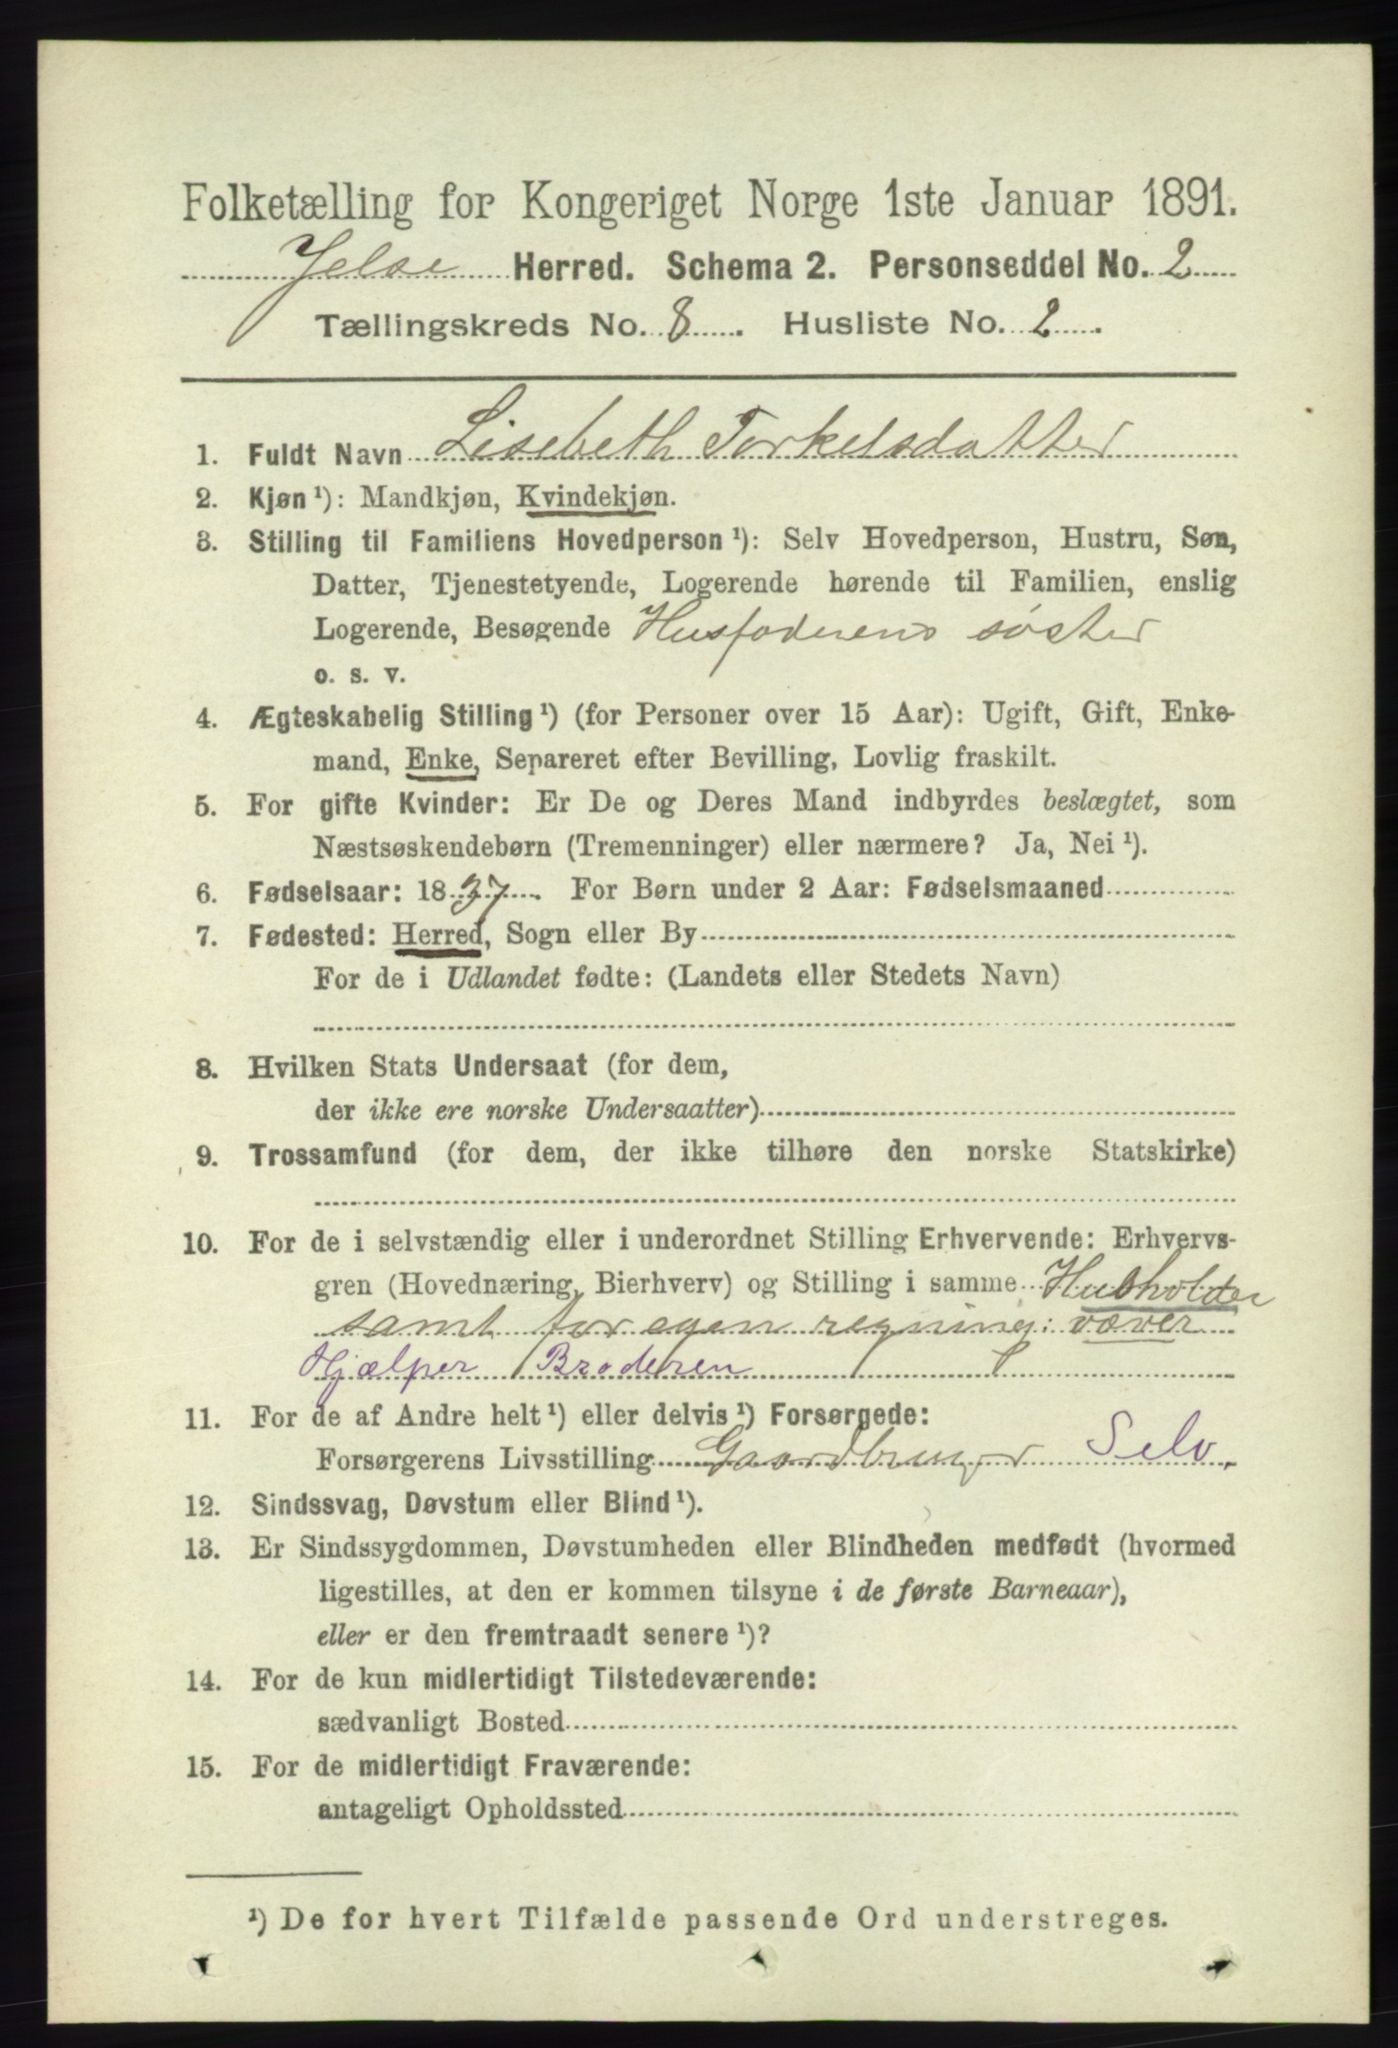 Folketælling for Kongeriget Norge 1ste Januar 1891.
Jelse Herred. Schema 2. Personseddel No. 2
Tællingskreds No. 8. Husliste No. 2.
1. Fuldt Navn Lisebeth Torkelsdatter
2. Kjøn ¹): Mandkjøn, Kvindekjøn.
3. Stilling til Familiens Hovedperson ¹): Selv Hovedperson, Hustru, Søn,
Datter, Tjenestetyende, Logerende hørende til Familien, enslig
Logerende, Besøgende Husfaderens søster
o. s. v.
4. Ægteskabelig Stilling ¹) (for Personer over 15 Aar): Ugift, Gift, Enke-
mand, Enke, Separeret efter Bevilling, Lovlig fraskilt.
5. For gifte Kvinder: Er De og Deres Mand indbyrdes beslægtet, som
Næstsøskendebørn (Tremenninger) eller nærmere? Ja, Nei ¹).
6. Fødselsaar: 1837. For Børn under 2 Aar: Fødselsmaaned
7. Fødested: Herred, Sogn eller By
For de i Udlandet fødte: (Landets eller Stedets Navn)
8. Hvilken Stats Undersaat (for dem,
der ikke ere norske Undersaatter)
9. Trossamfund (for dem, der ikke tilhøre den norske Statskirke)
10. For de i selvstændig eller i underordnet Stilling Erhvervende: Erhvervs-
gren (Hovednæring, Bierhverv) og Stilling i samme Husholder
samt for egen regning: væver
Hjælper Broderen
11. For de af Andre helt ¹) eller delvis ¹) Forsørgede:
Forsørgerens Livsstilling Gaardbruger Selv.
12. Sindssvag, Døvstum eller Blind ¹).
13. Er Sindssygdommen, Døvstumheden eller Blindheden medfødt (hvormed
ligestilles, at den er kommen tilsyne i de første Barneaar),
eller er den fremtraadt senere ¹)?
14. For de kun midlertidigt Tilstedeværende:
sædvanligt Bosted
15. For de midlertidigt Fraværende:
antageligt Opholdssted
¹) De for hvert Tilfælde passende Ord understreges.